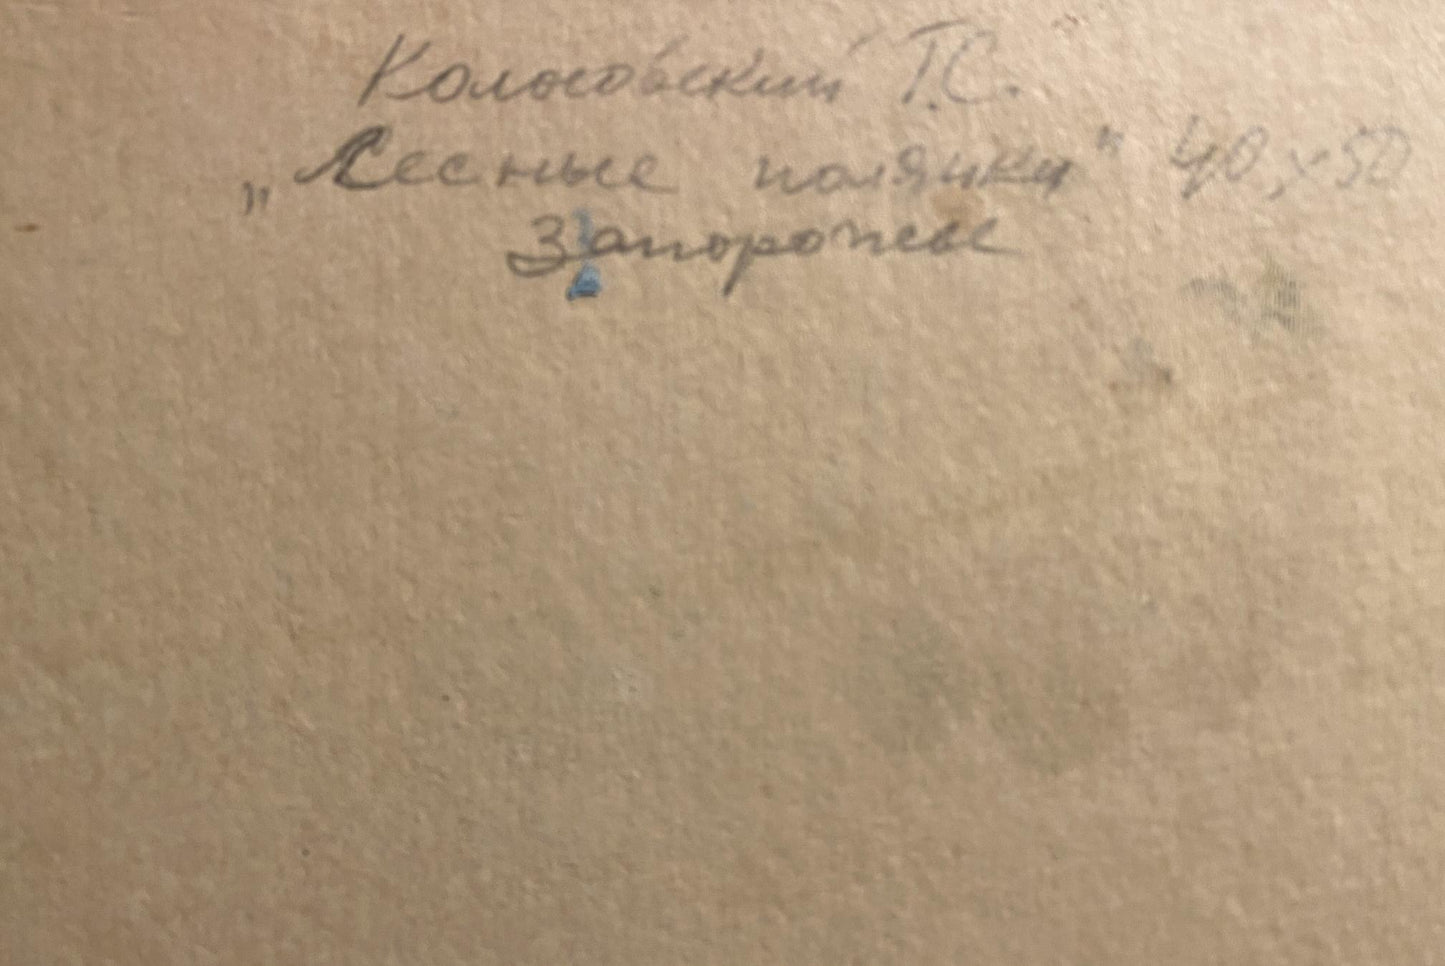 Колосовский Г.С.
„Лесные полянки" 40х50
Запорожье